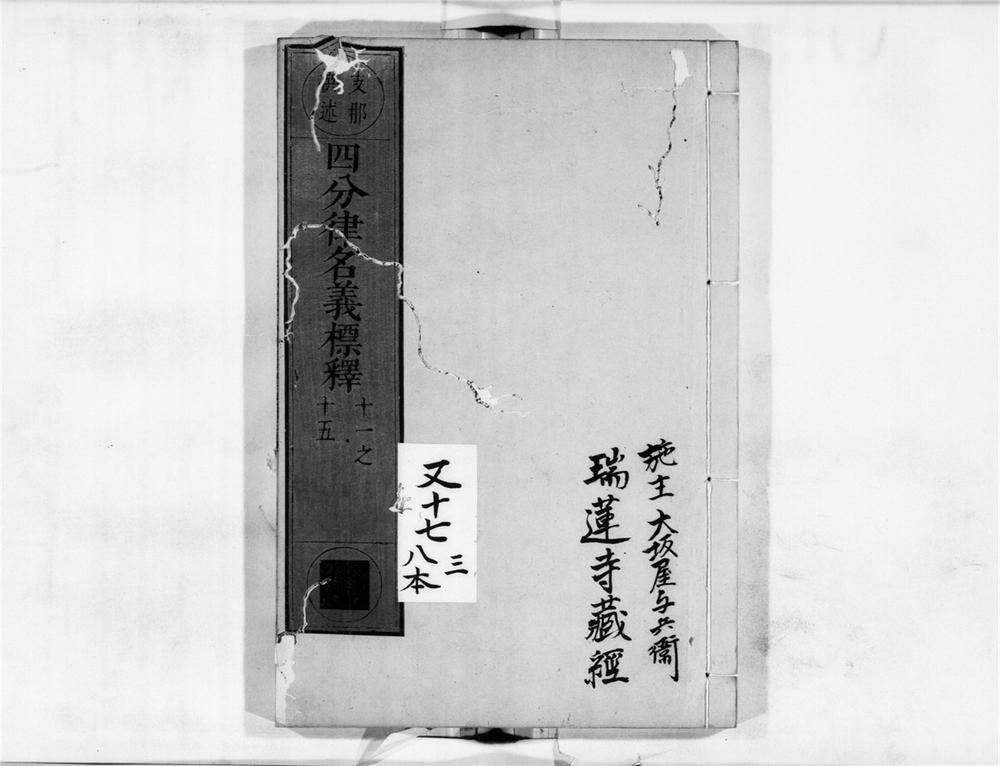 支那
撰述
四分律名義標釋
十一之
十五
又十七
三
八本
施主 大坂屋与兵衛
瑞蓮寺藏經